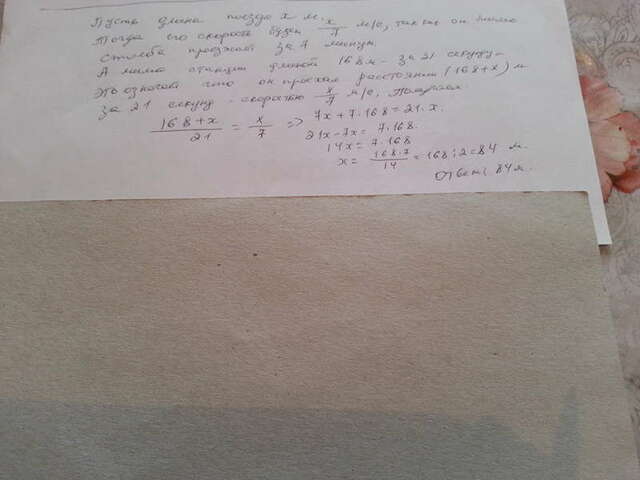 Пусть длина поезда x м.
Тогда его скорость будет x/7 м/с, так как он мимо
столба проезжает за 7 секунд.
А мимо станции длиной 168 м - за 21 секунду -
это означает что он проехал расстояние (168+x) м
за 21 секунд - скоростью x/7 м/с. Получаем:
(168+x)/21 = x/7 => 7x + 7·168 = 21·x.
21x-7x = 7·168.
14x = 7·168
x = 168·7/14 = 168:2 = 84 м.
Ответ: 84 м.